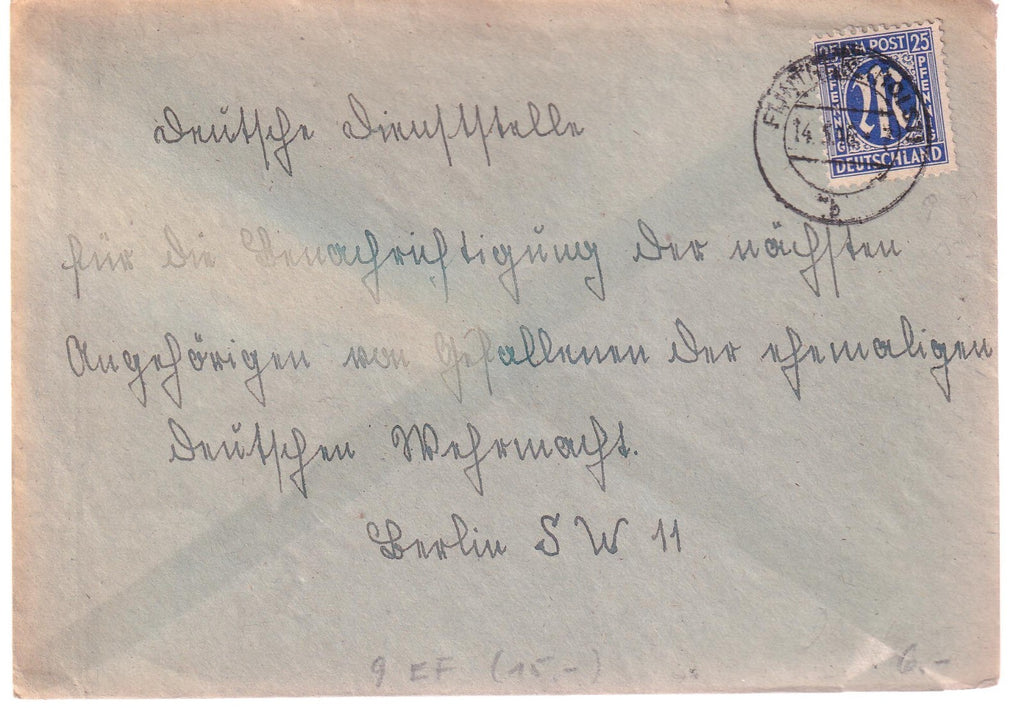 POST 25
PFENNIG PFENNIG
DEUTSCHLAND
14.5.
b
Deutsche Dienststelle
für die Benachrichtigung der nächsten
Angehörigen von Gefallenen der ehemaligen
Deutschen Wehrmacht.
Berlin S W 11
9 EF (15.-) 6.-